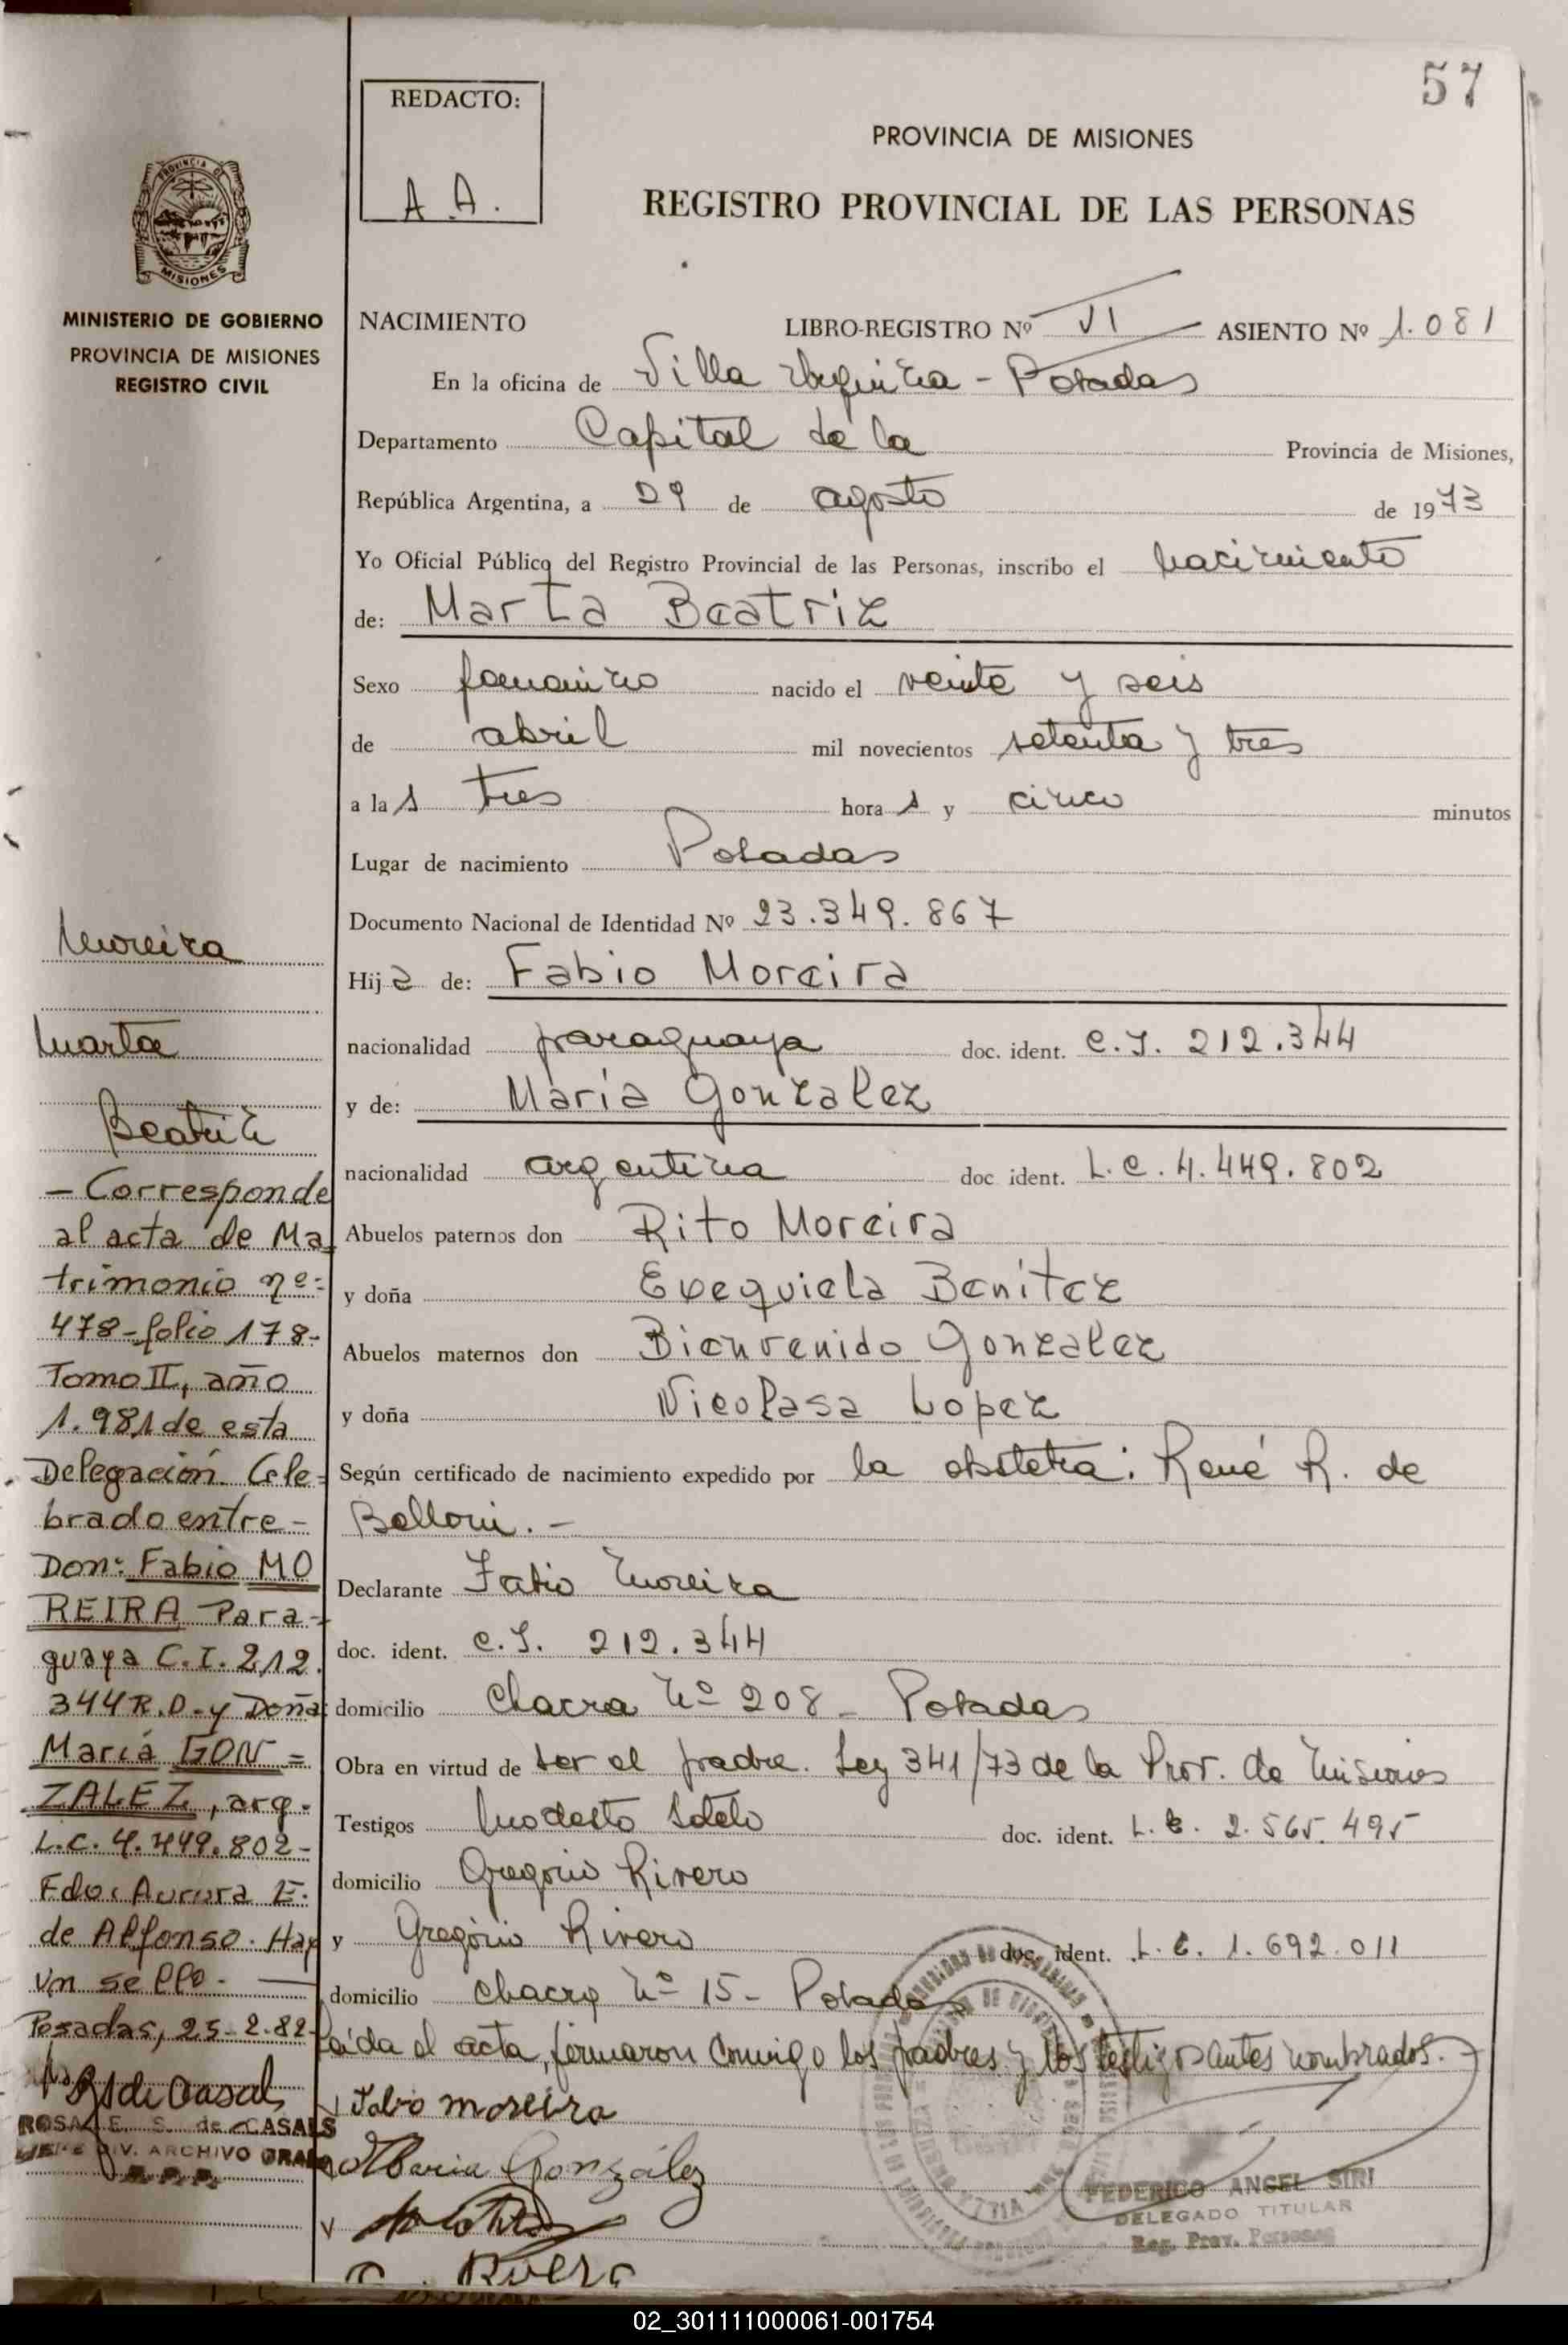 57
REDACTO:
A.A.
PROVINCIA DE MISIONES
REGISTRO PROVINCIAL DE LAS PERSONAS
PROVINCIA D
MISIONES
MINISTERIO DE GOBIERNO
PROVINCIA DE MISIONES
REGISTRO CIVIL
NACIMIENTO LIBRO-REGISTRO Nº VI ASIENTO Nº 1.081
En la oficina de Villa Urquiza - Posadas
Departamento Capital de la Provincia de Misiones,
República Argentina, a 29 de agosto de 1973
Yo Oficial Público del Registro Provincial de las Personas, inscribo el nacimiento
de: Marta Beatriz
Sexo femenino nacido el veinte y seis
de abril mil novecientos setenta y tres
a las tres horas y cinco minutos
Lugar de nacimiento Posadas
Documento Nacional de Identidad Nº 23.349.867
Hija de: Fabio Moreira
nacionalidad paraguaya doc. ident. C.I. 212.344
y de: María Gonzalez
nacionalidad argentina doc ident. L.C. 4.449.802
Abuelos paternos don Rito Moreira
y doña Exequiela Benitez
Abuelos maternos don Bienvenido Gonzalez
y doña Nicolasa Lopez
Según certificado de nacimiento expedido por la obstetra: René R. de
Belloni.-
Declarante Fabio Moreira
doc. ident. C.I. 212.344
domicilio Chacra Nº 208 - Posadas
Obra en virtud de ser el padre. Ley 341/73 de la Prov. de Misiones
Testigos Modesto Sotelo doc. ident. L.E. 2.565.495
domicilio Gregorio Rivero
y Gregorio Rivero doc. ident. L.E. 1.692.011
domicilio Chacra Nº 15 - Posadas
Leída el acta, firmaron conmigo los padres y los testigos antes nombrados.-
Fabio moreira
Maria González
Rivero
FEDERICO ANGEL SIRI
DELEGADO TITULAR
Reg. Prov. Personas
Moreira
Marta
Beatriz
- Corresponde
al acta de Ma-
trimonio nº:
478-folio 178-
Tomo II, año
1.981 de esta
Delegación Cele-
brado entre-
Don: Fabio MO
REIRA Para-
guaya C.I. 212.
344 R.D.-y Doña
María GON=
ZALEZ, arg.
L.C. 4.449.802-
Fdo: Aurora E.
de Alfonso. Hay
un sello.-
Posadas, 25-2-82-
RSdeCasals
ROSA E. S. de CASALS
JEFE DIV. ARCHIVO GRAL
R.P.P.
02_301111000061-001754